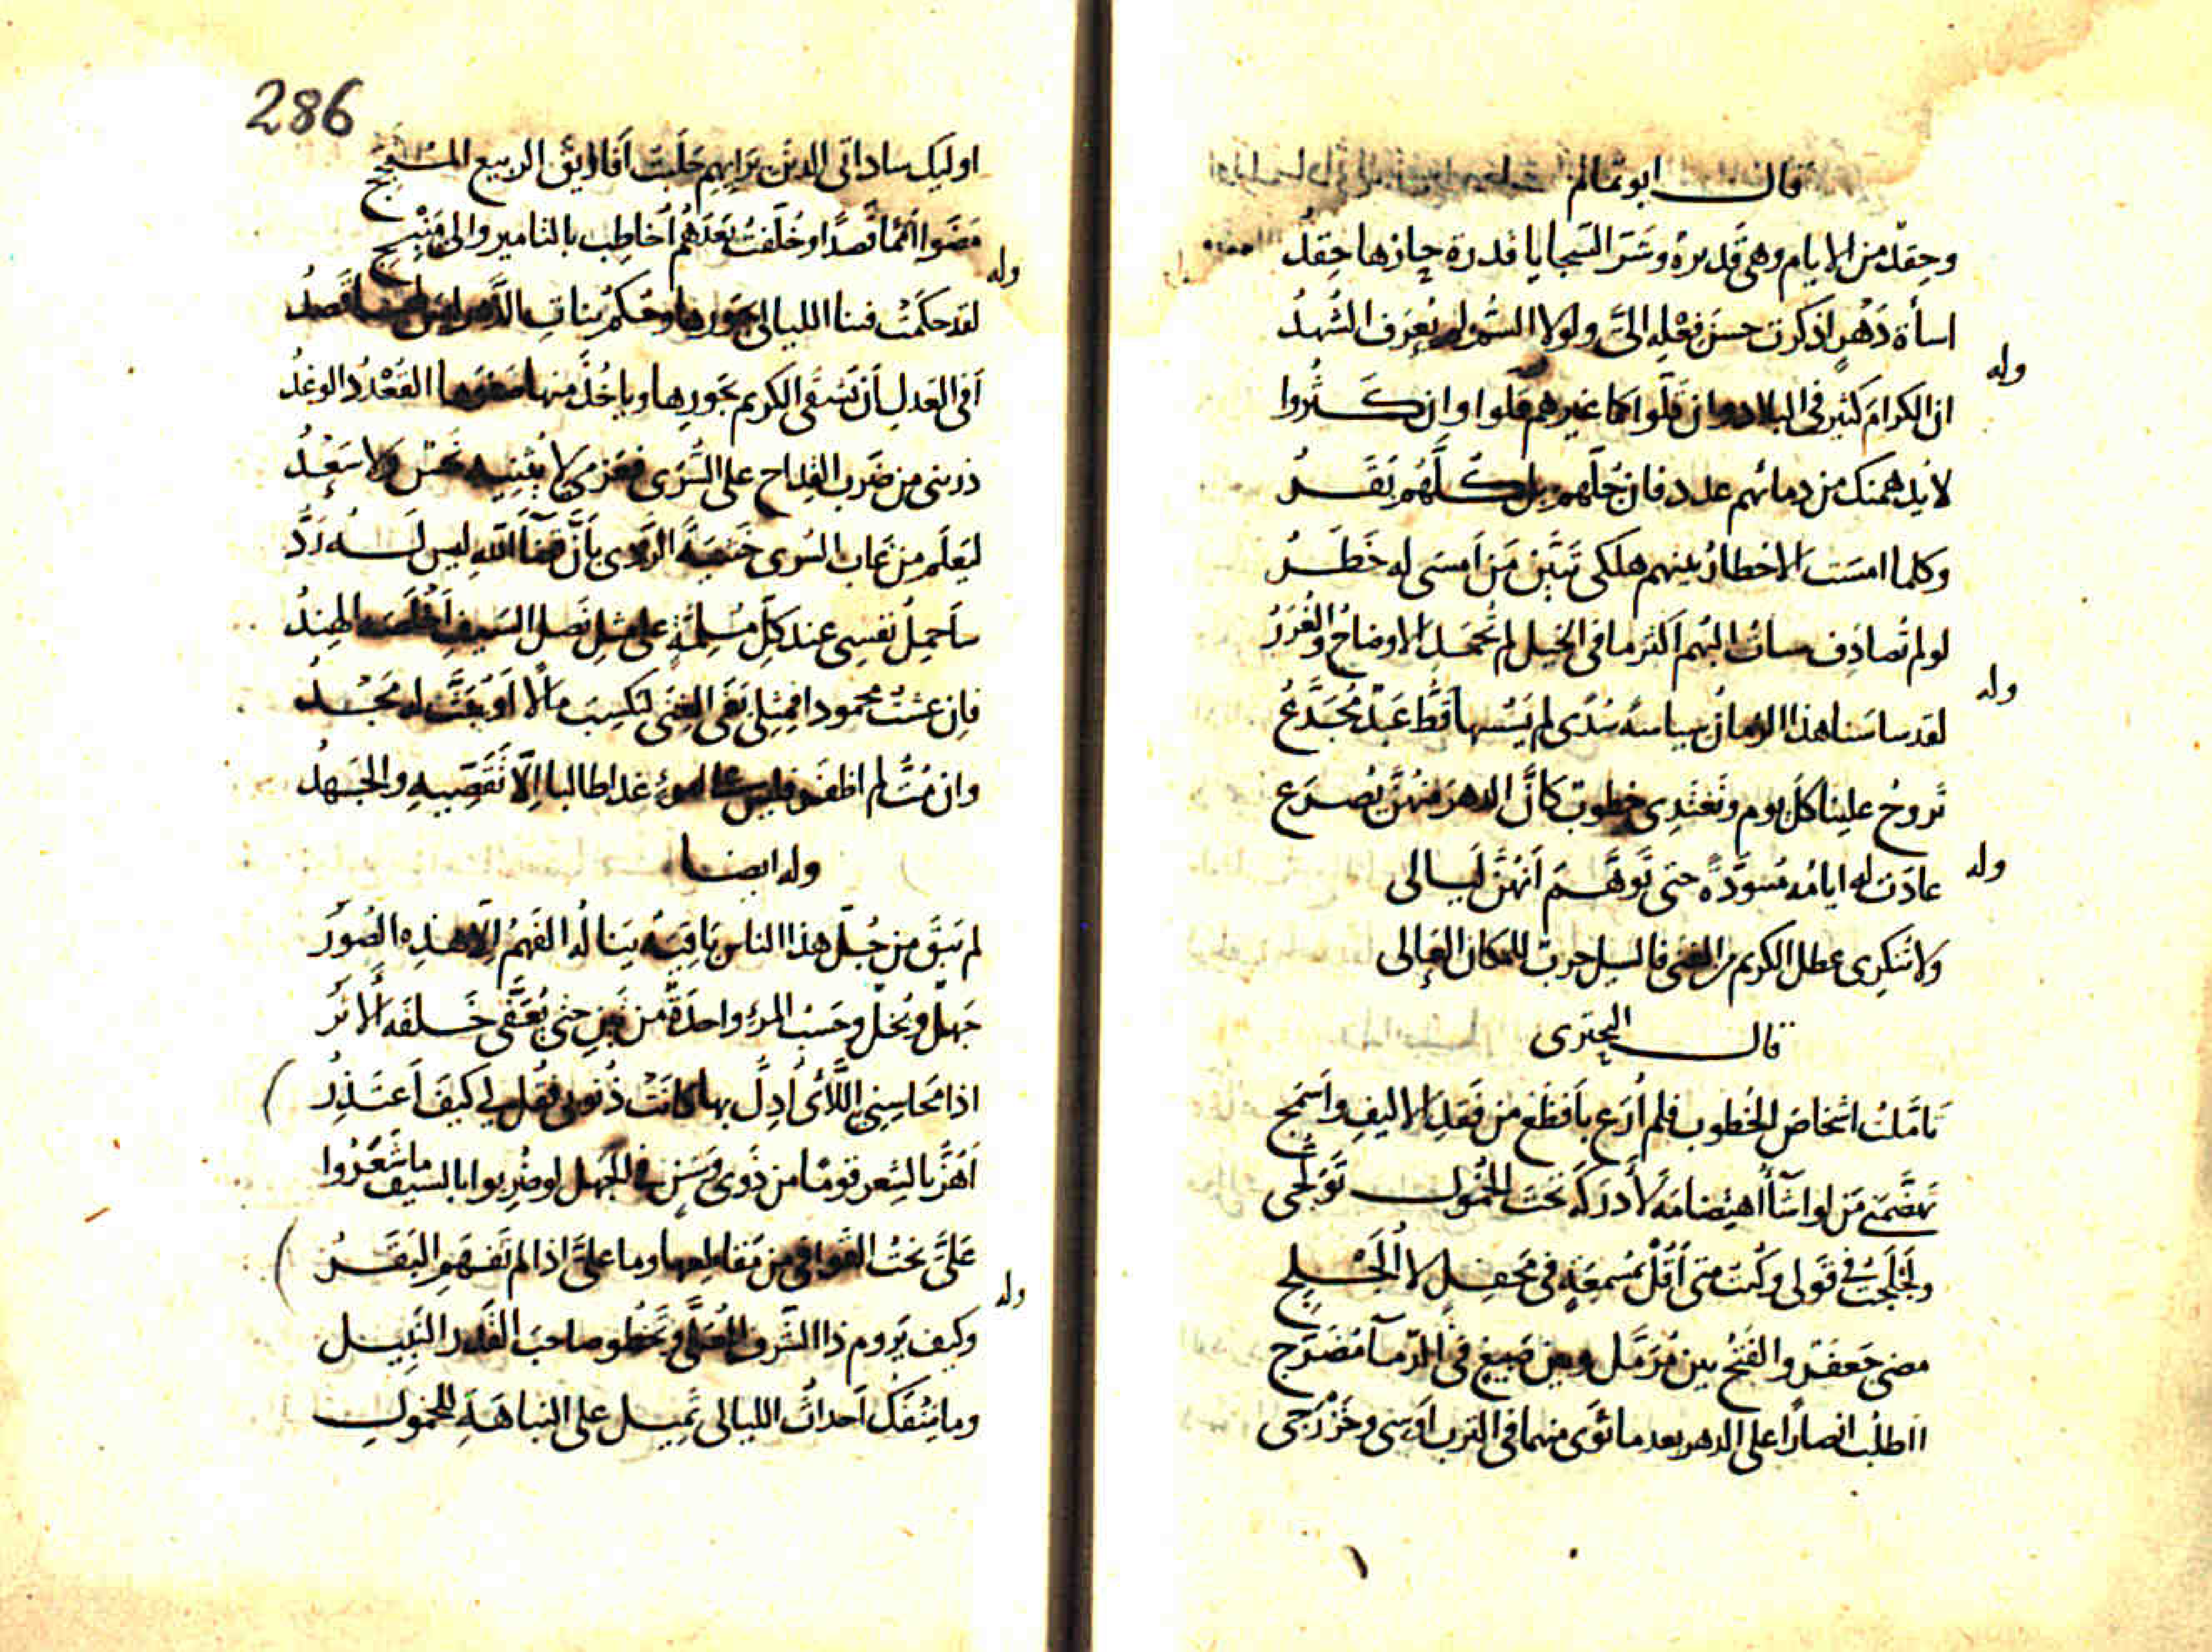 قال ابو تمام
وحِقدٌ من الايام وهي قديرة وشَرّ السَجايا قدرة جارُها حِقدُ
اسأة دَهْرٍ اذكرت حسن فِعْلِه الىَّ ولولا الشرى لم يُعرَف الشُهدُ
وله
ان الكرام كثير في البلاد وان قَلّوا كما غيرهم قلوا وان كَثُروا
لا يدهمنك من دهمائهم عدد فان جُلَّهم بل كلَّهُم بَقَرُ
وكلما امست الاخطار بينهم هلكى تبيَّن مَن اَمسَى له خَطَرُ
لو لم تُصادِف سيات البُهم اكثر ما في الخيل لم تُحمَدِ الاوضاح والغُرَرُ
وله
لقد ساسنا هذا الزمان سياسة سُدًى لم يَسُسها قَطُّ عَبدٌ مُجَدَّعُ
تروح علينا كل يوم وتَغتَدِى خطوبٌ كأنَّ الدهر منهُنَّ يُصرَع
وله
عادَت له ايامُه مُسوَدَّةً حتى تَوَهَّمَ اَنهُنَّ لَيالى
ولا تنكِرى عطل الكريم من الغنى فالسيل حرب للمكان العالى
قال البحترى
تأمَّلتُ اشخاصَ الخُطوب فلم اُرَع بأفظَعَ من فَقدِ الاليفِ واَسمَج
تهضّمنى مَن لو اشآأ اهتِضامَهُ لأدركَه تحت الخُمول تَوَلُّجى
ولَجلَجتُ في قَولى وكُنت متى اَقُلْ بمُسمِعَةٍ في مَحفِلٍ لا اُلَجْلِجِ
مضى جَعفَرٌ والفَتحُ بين مُرَمَّل وبين صَبيغ في الدِّمآ مُضَرَّج
ااطلُب انصارًا على الدهر بعد ما ثَوَى منهما في الترب اَوسى وخَزرَجى
286
اوليك ساداتى الذين برَأيِهِم حَلَبتُ اَفاويق الربيع المُثَجَّجِ
مَضَوا اُمَمًا قَصدًا وخُلِّفتُ بَعدَهُم اُخاطِب بالتامير والى مَنْبِجِ
وله
لقد حكَمَتْ فينا الليالى بجَورِها وحُكم بناتِ الدَّهر ليس له قصدُ
اَفى العَدلِ اَن يَشقَى الكريم بجَورِها وياخُذَ منها صَفوَها القُعْدُدُ الوغدُ
ذرينى مِن ضَربِ القِداح على السُرَى فعَزمى لا يَثنِيهِ نَحسٌ وَلا سَعْدُ
ليَعلَم من هاب السُرى خَشيَةَ الرَّدى بأَنَّ قضآأَ اللهِ ليس لَهُ رَدُّ
سأحمِلُ نفسى عند كلِّ مُلِمَّةٍ على مِثلِ نَصلِ السَيفِ اَخلَصَه الهِندُ
فاِن عشتُ محمودا فمِثلى بَغَى الغِنَى لتكسِبَ مالاً اَو يُبَثَّ له مَجْدُ
وان مُتُّ لم اظفَر فليس على امرئ غدا طالبا اِلّا تَقَصّيهِ والجَهدُ
وله ايضا
لم يَبقَ من جُلّ هذا الناس باقِيَةٌ ينالُه الفَهمُ اِلّا هذِه الصُوَرُ
جَهلٌ وبُخلٌ وحَسْبُ المرءِ واحدَةٌ من ذَينِ حتى يُعَفَّى خَلفَه الاَثَرُ
اذا مَحاسِنىَ اللّائى اُدِلُّ بها كانَتْ ذُنوبى فقُل لى كيفَ اَعتَذِرُ
اَهُزُّ بالشِعر قومًا من ذَوى وَسَنٍ في الجَهل لو ضُرِبوا بالسيف ما شَعَرُوا
عَلَىَّ نحتُ القَوافى مِن مَقاطِعِها وما علىَّ اذا لم تَفهَمِ البَقَرُ
وله
وكيف يَروم ذا الشَّرف المُعَلَّى ويَخطو صاحبَ القَدر النَبِيل
وما يَنفَكُّ اَحداثُ الليالى تَمِيل على النباهَةِ للخمولِ